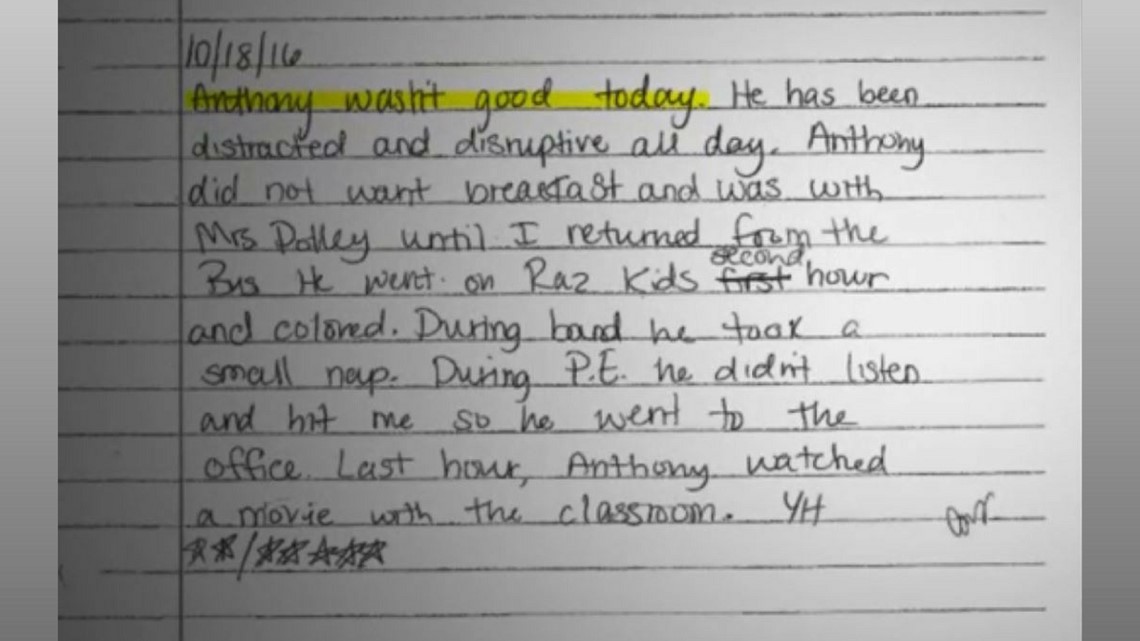 10/18/16
Anthony wasn't good today. He has been
distracted and disruptive all day. Anthony
did not want breakfast and was with
Mrs Dolley until I returned from the
second
Bus He went on Raz Kids first hour
and colored. During band he took a
small nap. During P.E. he didn't listen
and hit me so he went to the
office. Last hour, Anthony watched
a movie with the classroom. YH
**/*****